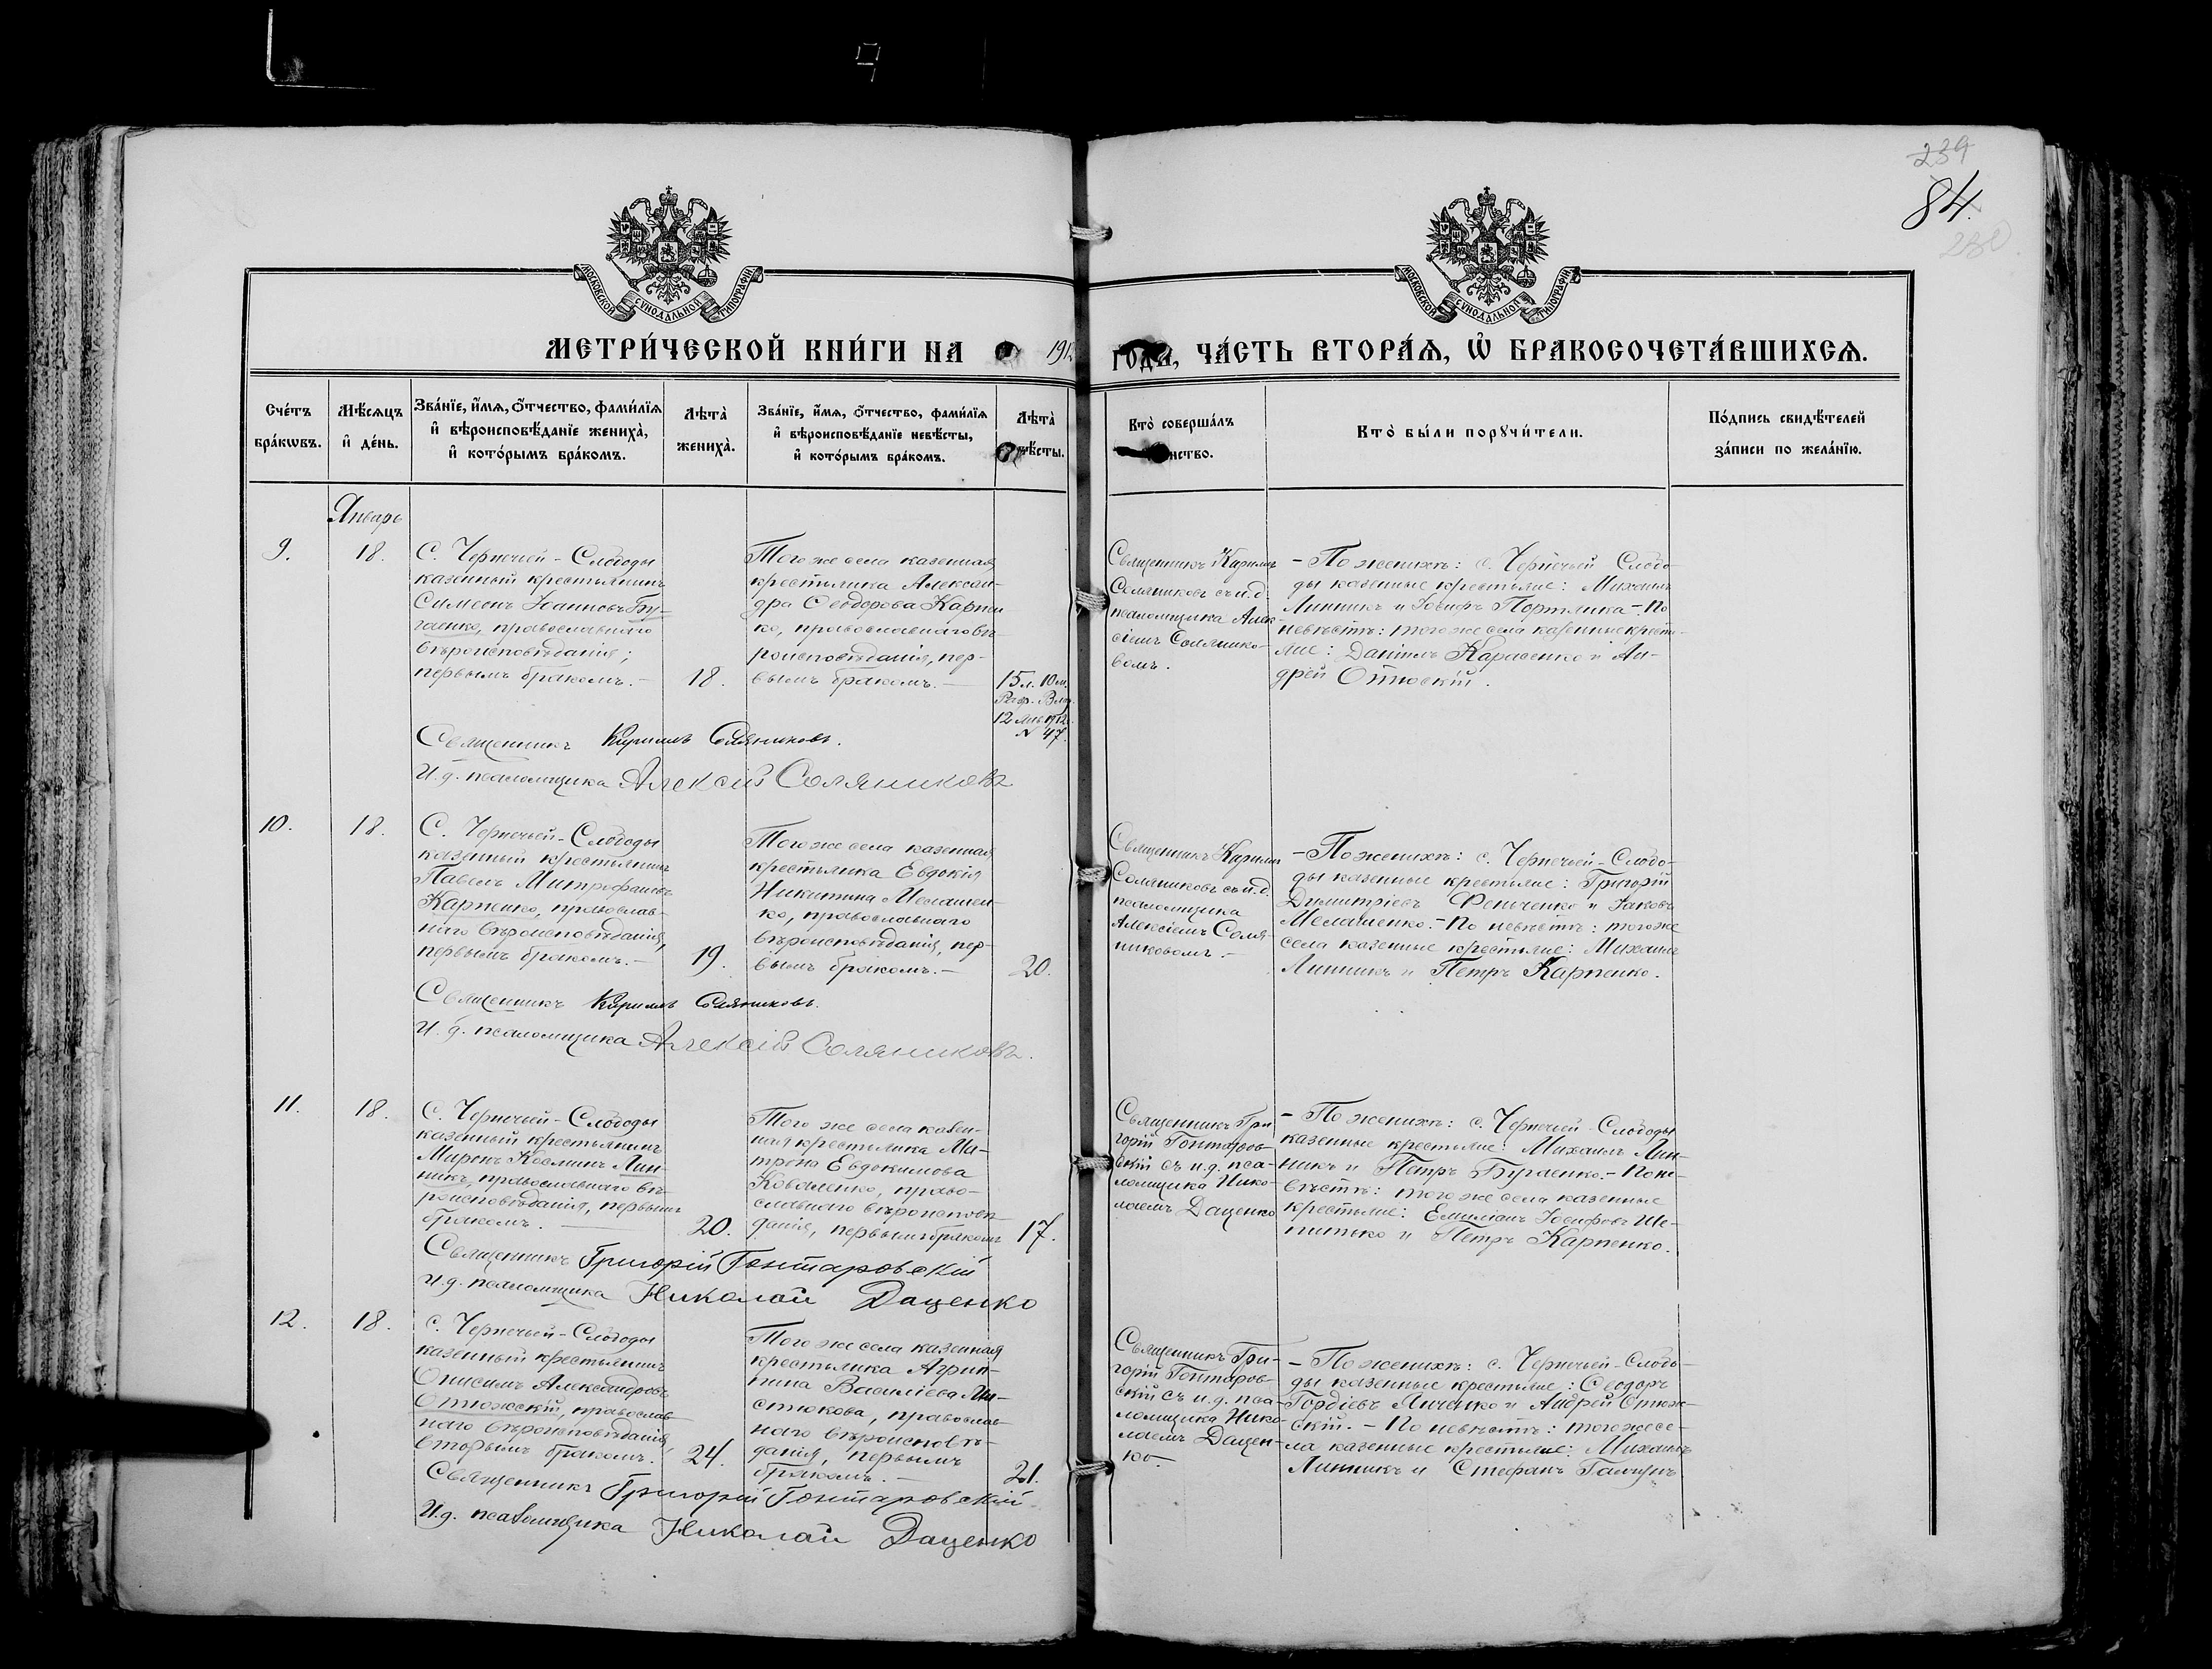 239
84.
МОСКОВСКОЙ СУНОДАЛЬНОЙ ТИПОГРАФІИ
МОСКОВСКОЙ СУНОДАЛЬНОЙ ТИПОГРАФІИ
МЕТРИ́ЧЕСКОЙ КНИ́ГИ НА 191
ГОДЪ, ЧА́СТЬ ВТОРА́Ѧ, Ѽ БРАКОСОЧЕТА́ВШИХСѦ.
Сче́тъ бра́кѡвъ.
Мѣ́сѧцъ и҆ де́нь.
Зва́нїе, и҆́мѧ, ѻ҆́тчество, фами́лїѧ
и҆ вѣроисповѣ́данїе жениха̀,
и҆ кото́рымъ бра́комъ.
Лѣта̀ жениха̀.
Зва́нїе, и҆́мѧ, ѻ҆́тчество, фами́лїѧ
и҆ вѣроисповѣ́данїе невѣ́сты,
и҆ кото́рымъ бра́комъ.
Лѣта̀
вѣ́сты.
Кто̀ соверша́лъ
нство.
Кто̀ бы́ли порꙋчи́тели.
По́дпись свидѣ́телей
за́писи по жела́нїю.
Январь
9.
18.
С. Чернечьей-Слободы
казенный крестьянинъ
Симеонъ Іоанновъ Бу-
гаенко, православнаго
вѣроисповѣданія;
первымъ бракомъ.-
18.
Того же села казенная
крестьянка Алексан-
дра Ѳеодорова Карпен
ко, православнаго вѣ
роисповѣданія, пер-
вымъ бракомъ.-
15 л. 10 м.
12 Янв 1912
№ 47.
Священникъ Кириллъ
Соляниковъ съ и.д.
псаломщика Алек-
сіемъ Солянико-
вомъ.
- По женихѣ: с. Чернечьей Слобо
ды казенные крестьяне: Михаилъ
Линникъ и Іосифъ Портянка - По
невѣстѣ: того же села казенные кресть-
яне: Даніилъ Карасенко и Ан-
дрей
Священникъ Кириллъ Соляниковъ.
И.д. псаломщика Алексій Соляниковъ
10.
18.
С. Чернечьей-Слободы
казенный крестьянинъ
Павелъ Митрофановъ
Карпенко, православ-
наго вѣроисповѣданія,
первымъ бракомъ.-
19.
Того же села казенная
крестьянка Евдокія
Никитина Мелашен-
ко, православнаго
вѣроисповѣданія, пер-
вымъ бракомъ.-
20.
Священникъ Кириллъ
Соляниковъ съ и.д.
псаломщика
Алексіемъ Соля-
никовомъ.-
- По женихѣ: с. Чернечьей-Слобо-
ды казенные крестьяне: Григорій
Димитріевъ Фенченко и Іаковъ
Мелашенко.- По невѣстѣ: того же
села казенные крестьяне: Михаилъ
Линникъ и Петръ Карпенко.
Священникъ Кириллъ Соляниковъ.
И.д. псаломщика Алексій Соляниковъ.
11.
18.
С. Чернечьей-Слободы
казенный крестьянинъ
Миронъ Косминъ Лин-
никъ, православнаго вѣ-
роисповѣданія, первымъ
бракомъ.-
20.
Того же села казен-
ная крестьянка Ма-
трона Евдокимова
Коваленко, право-
славнаго вѣроисповѣ-
данія, первымъ бракомъ
17.
Священникъ Гри
горій Гонтаров-
скій съ и.д. пса-
ломщика Нико-
лаемъ Даценко
- По женихѣ: с. Чернечьей Слободы
казенные крестьяне: Михаилъ Лин-
никъ и Петръ Бугаенко.- По не-
вѣстѣ: того же села казенные
крестьяне: Емиліанъ Іосифовъ Ше-
питько и Петръ Карпенко.
Священникъ Григорій Гонтаровскій
И.д. псаломщика Николай Даценко
12.
18.
с. Чернечьей-Слободы
казенный крестьянинъ
Онисимъ Александровъ
Отюжскій, православ
наго вѣроисповѣданія,
вторымъ бракомъ.
24.
Того же села казенная
крестьянка Агрип-
пина Василіева Ли-
стюкова, православ
наго вѣроисповѣ-
данія, первымъ
бракомъ.-
21.
Священникъ Гри-
горій Гонтаров-
скій съ и.д. пса-
ломщика Нико-
лаемъ Дацен-
ко-
- По женихѣ: с. Чернечьей-Слобо-
ды казенные крестьяне: Ѳеодоръ
Гордіевъ Личенко и Андрей Отюж-
скій.- По невѣстѣ: того же се-
ла казенные крестьяне: Михаилъ
Линникъ и Стефанъ
Священникъ Григорій Гонтаровскій
И.д. псаломщика Николай Даценко